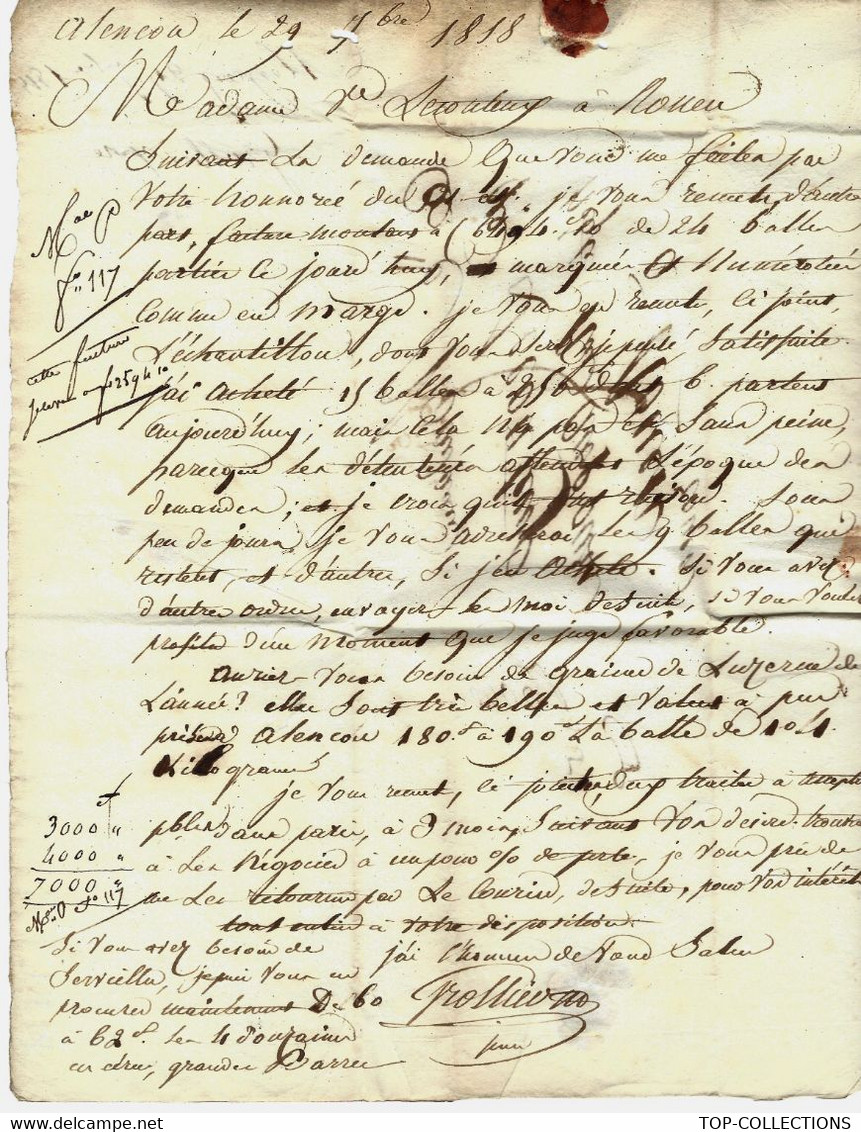 Alencon le 29 7bre 1818
Madame Ve Lecouteux à Rouen
Suivant La demande Que vous me faites par
votre honnorée du je vous remets d'autre
part, facture montant à de 24 balles
parties ce jourd'huy, marquées et Numérotées
Comme en marge. je vous en remets, ci joint,
L'échantillon, dont vous serez je pense, satisfaite.
j'ai acheté 15 balles à 250 dont 6 partent
aujourd'huy; mais cela n'a pas été sans peine,
parceque les détenteurs attendent L'époque des
demandes; et je crois qu'ils ont raison. Sous
peu de jours je vous adresserai les 9 balles qui
restent, et d'autres, si j'en achete. Si vous avez
d'autres ordres, envoyez les moi desuite, si vous voulez
profiter d'un moment que je juge favorable.
auriez-vous besoin de graine de Luzerne de
L'année? elles sont très belles et valent à peu
près Alencon 180 à 190 La balle de 104
Killogrames
je vous remets, ci jointes, deux traites
sur paris, à 3 mois, Suivant Vos désirs.
à Les Négocier à un pour % de perte, je vous prie de
me Les retourner par Le Courier, desuite, pour vos intérêts
tout entier à votre disposition.
j'ai l'honneur de vous Saluer
Mae P
fo 117
cette facture
3000 "
4000 "
7000
fo 117
Si vous avez besoin de
Serviettes, je puis vous en
procurer maintenant De 60
à 62 les 4 douzaines
en écru, grandes Barres
TOP-COLLECTIONS